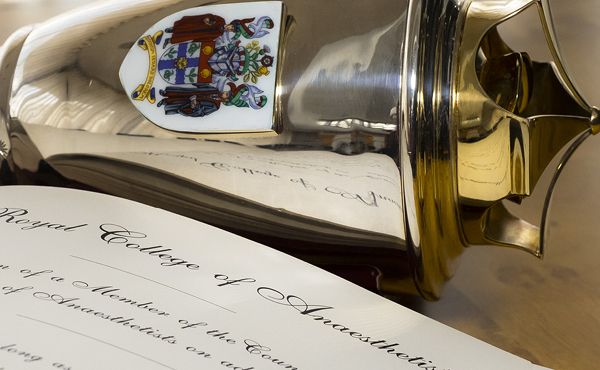 Royal College of Anaesthetis
n of a Member of the Coun
of Anaesthetists on ad
long as